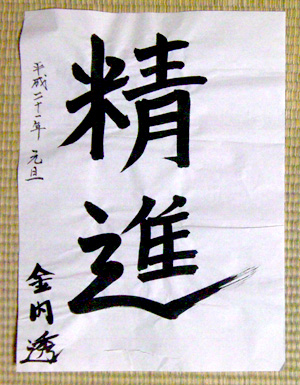 精進
平成二十一年 元旦
金内透